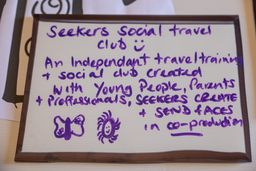 Seekers social travel
club
An Independant travel training
+ social club created
with Young People, Parents
+ Proffessionals, SEEKERS CREATE
+ SEND FACES
in co-production